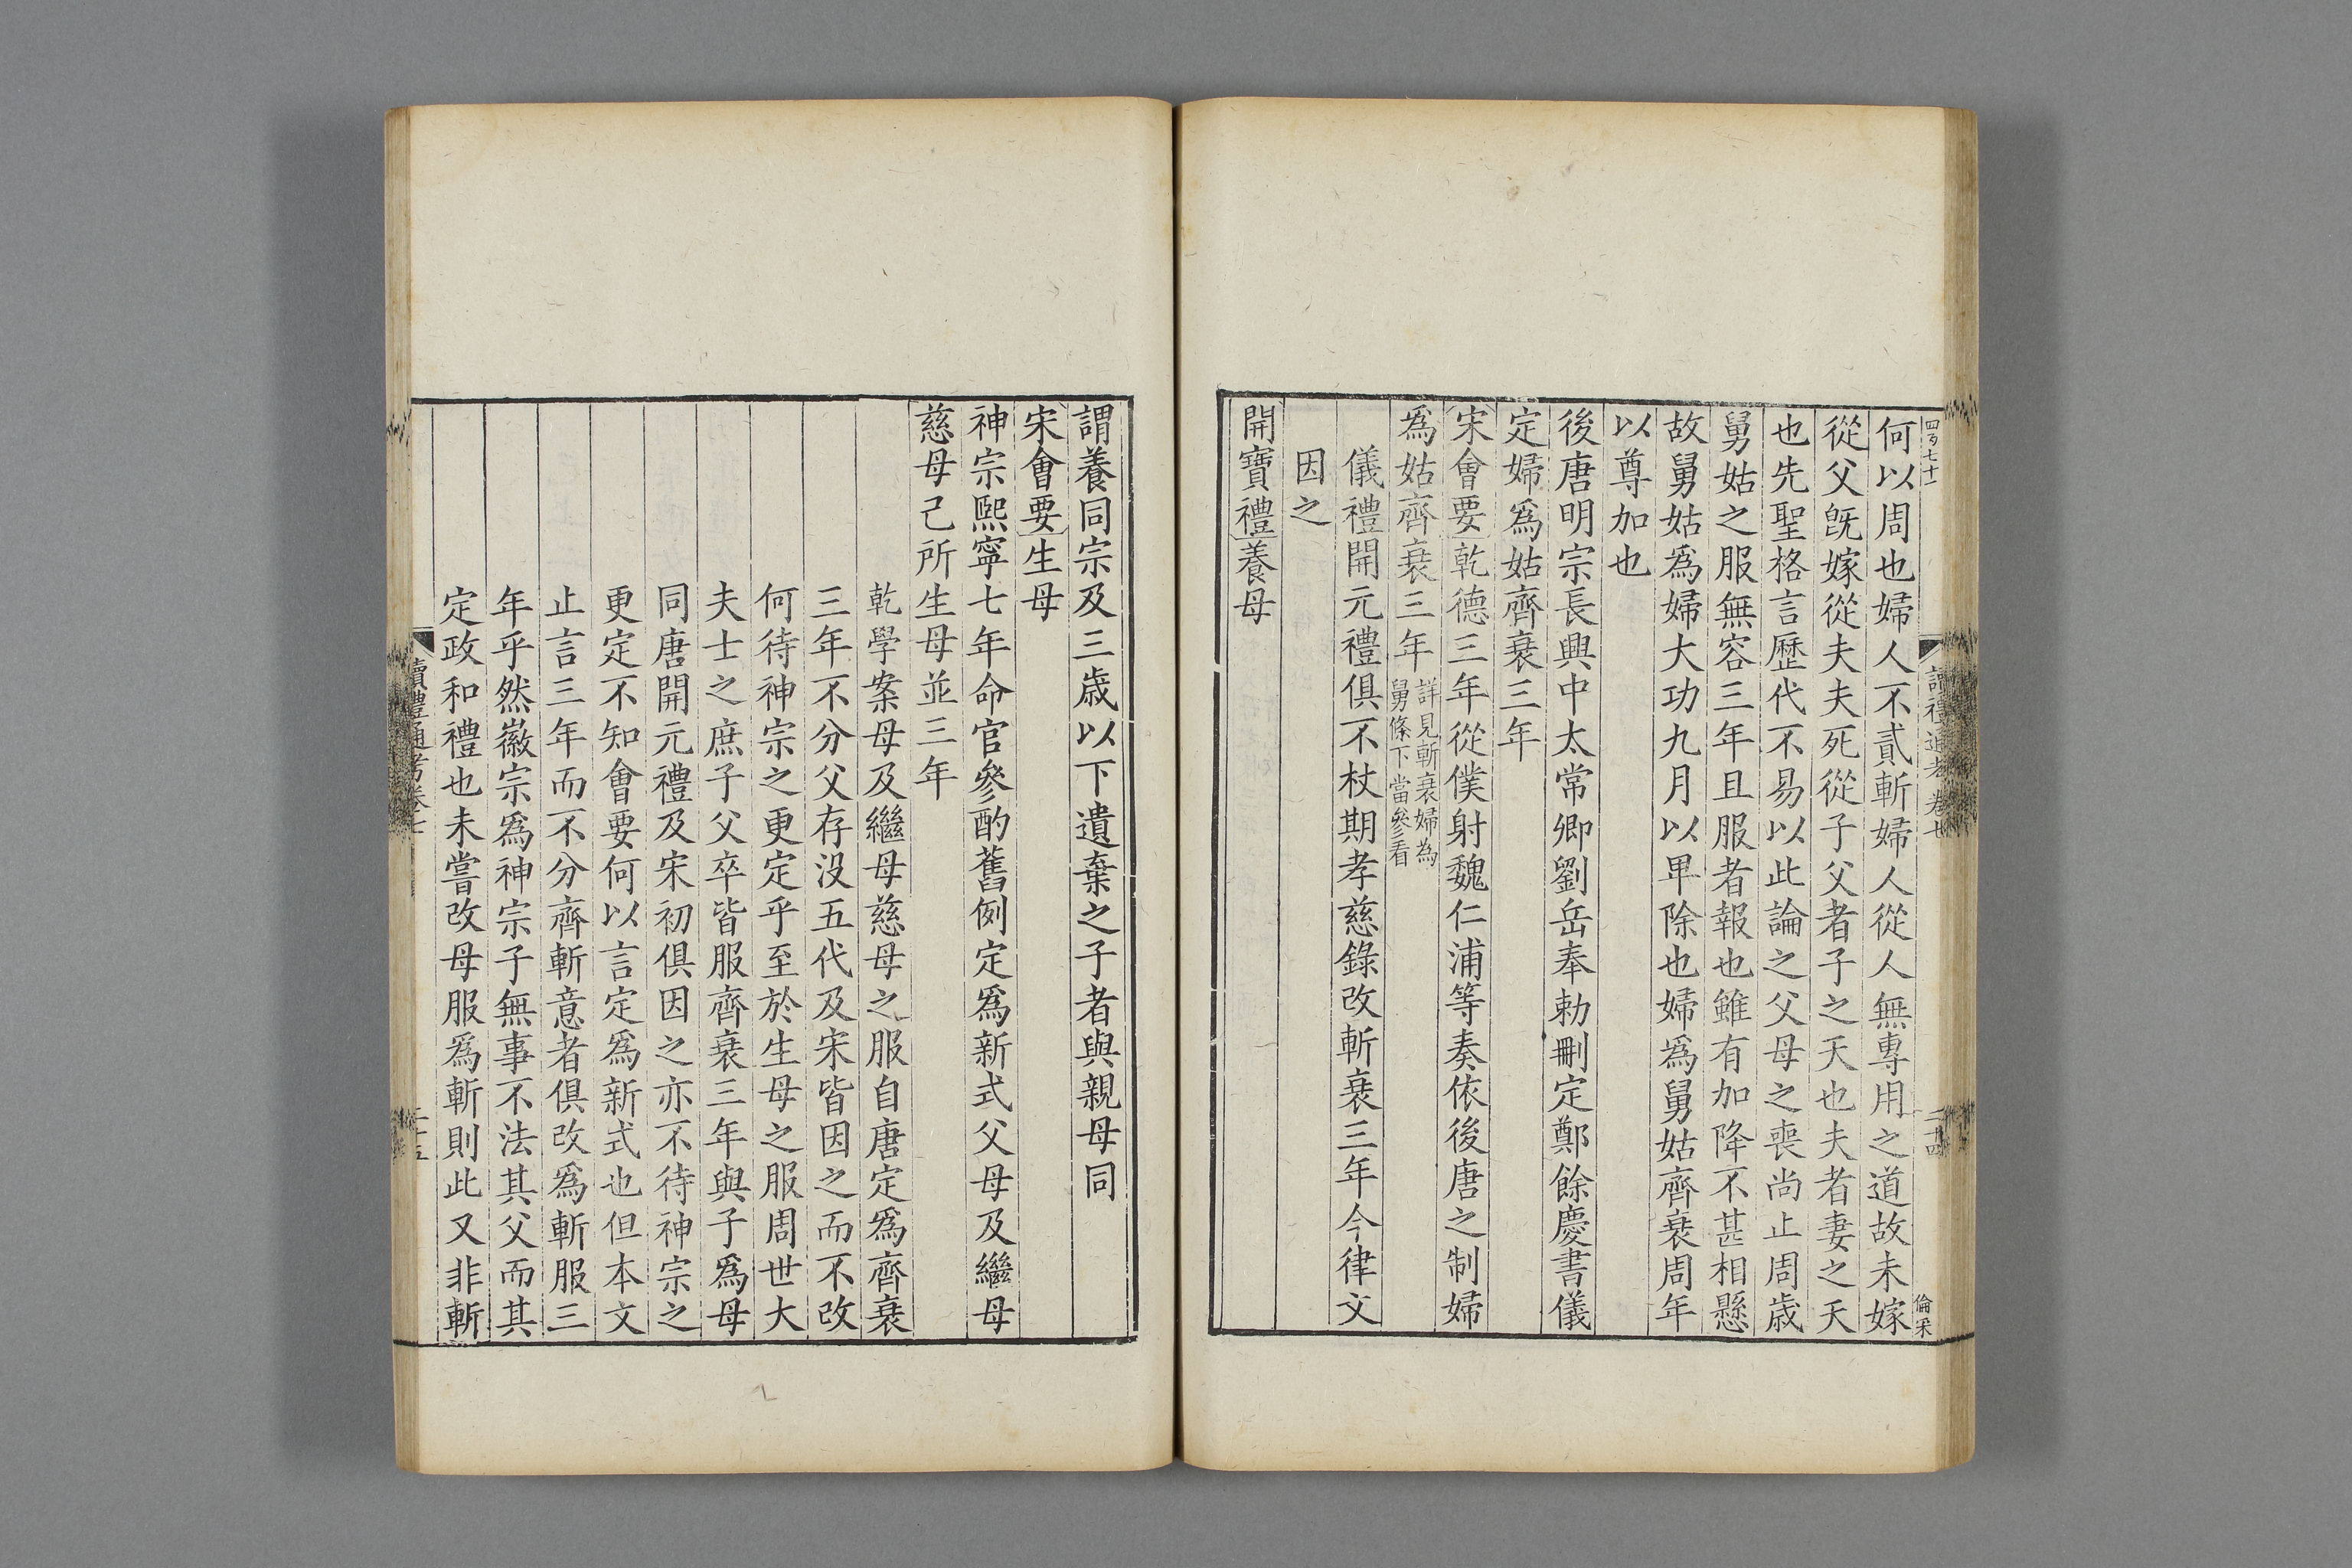 四百七十
讀禮通考 卷七
二十四
倫采
何以周也婦人不貳斬婦人從人無專用之道故未嫁
從父旣嫁從夫夫死從子父者子之天也夫者妻之天
也先聖格言歷代不易以此論之父母之喪尚止周歲
舅姑之服無容三年且服者報也雖有加降不甚相懸
故舅姑爲婦大功九月以卑除也婦爲舅姑齊衰周年
以尊加也
後唐明宗長興中太常卿劉岳奉勅刪定鄭餘慶書儀
定婦爲姑齊衰三年
宋會要乾德三年從僕射魏仁浦等奏依後唐之制婦
爲姑齊衰三年詳見斬衰婦為舅條下當參看
儀禮開元禮俱不杖期孝慈錄改斬衰三年今律文
因之
開寶禮養母
謂養同宗及三歲以下遺棄之子者與親母同
宋會要生母
神宗熙寧七年命官參酌舊例定爲新式父母及繼母
慈母己所生母並三年
乾學案母及繼母慈母之服自唐定爲齊衰
三年不分父存没五代及宋皆因之而不改
何待神宗之更定乎至於生母之服周世大
夫士之庶子父卒皆服齊衰三年與子爲母
同唐開元禮及宋初俱因之亦不待神宗之
更定不知會要何以言定爲新式也但本文
止言三年而不分齊斬意者俱改爲斬服三
年乎然徽宗爲神宗子無事不法其父而其
定政和禮也未嘗改母服爲斬則此又非斬
讀禮通考卷七
二十五